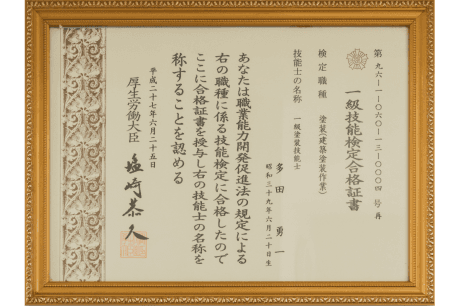 第九六-一-〇六〇-一三-〇〇〇四号再
一級技能検定合格証書
検定職種　塗装(建築塗装作業)
技能士の名称　一級塗装技能士
多田勇一
昭和三十九年六月二十日生
あなたは職業能力開発促進法の規定による
右の職種に係る技能検定に合格したので
ここに合格証書を授与し右の技能士の名称を
称することを認める
平成二十七年六月二十五日
厚生労働大臣　塩崎恭久